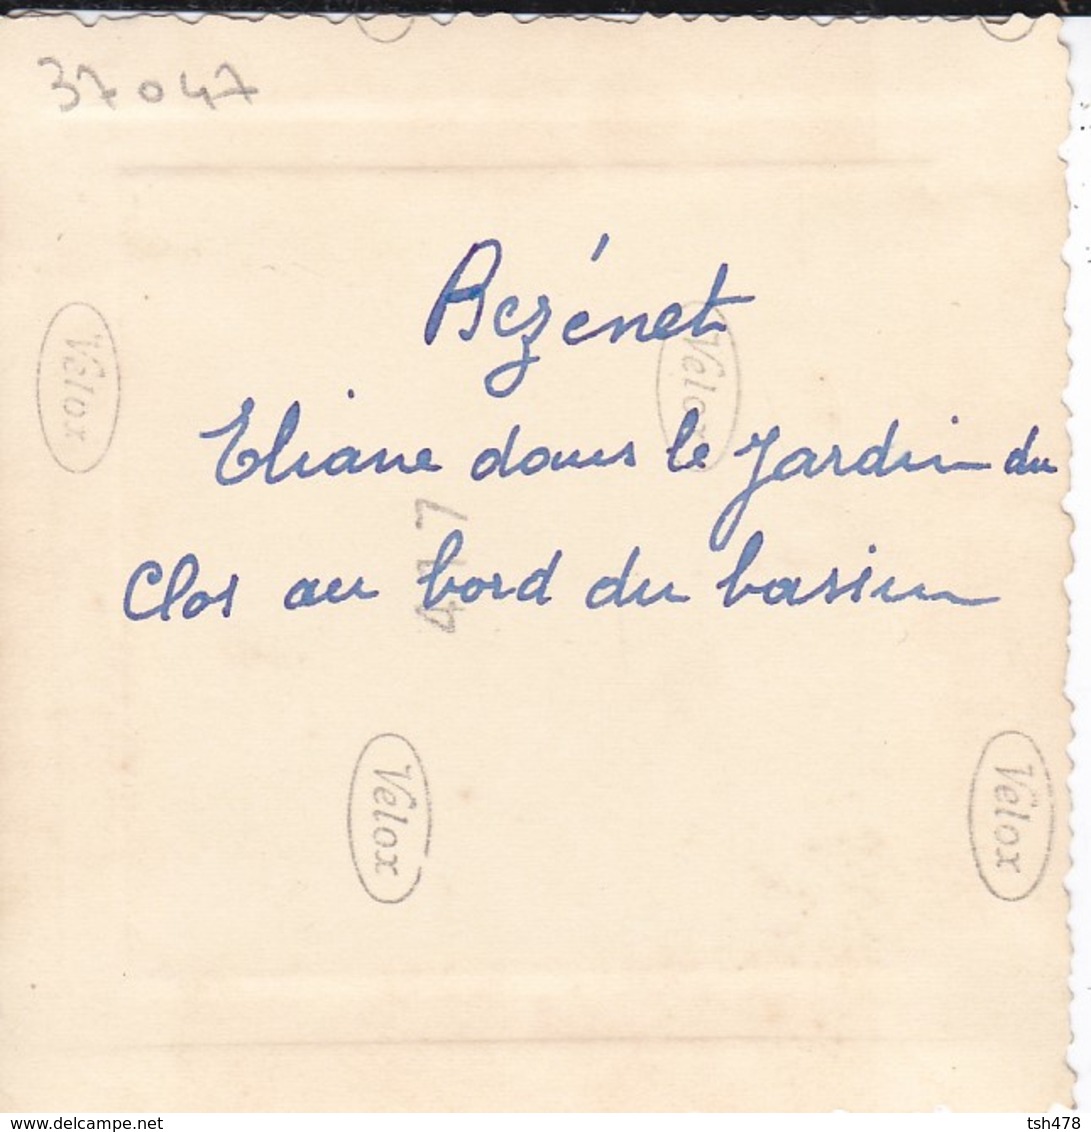 37047
Bezénet
Eliane dans le jardin du
Clos au bord du bassin
417
Velox
Velox
Velox
Velox
delcampe.net
tsh478